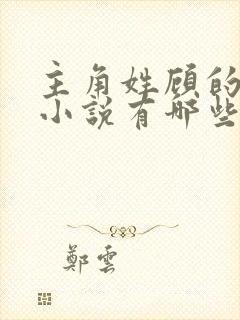 主角姓顾的
小说有哪些
鄭雲